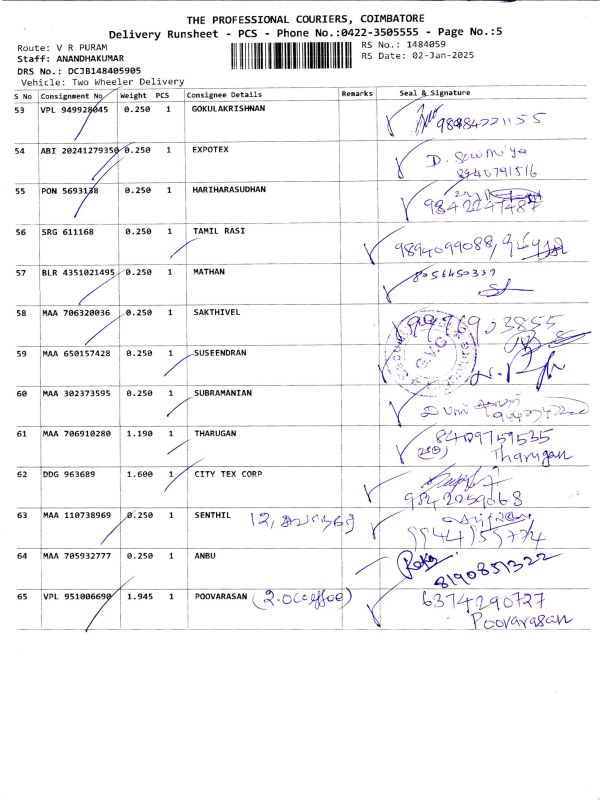 THE PROFESSIONAL COURIERS, COIMBATORE
Delivery Runsheet - PCS - Phone No.:0422-3505555 - Page No.:5
Route: V R PURAM RS No.: 1484059
Staff: ANANDHAKUMAR RS Date: 02-Jan-2025
DRS No.: DCJB148405905
Vehicle: Two Wheeler Delivery
S No Consignment No Weight PCS Consignee Details Remarks Seal & Signature
53 VPL 949928045 0.250 1 GOKULAKRISHNAN
54 ABI 20241279350 0.250 1 EXPOTEX D. Sowmiya
8940791516
55 PON 5693138 0.250 1 HARIHARASUDHAN
9842247487
56 SRG 611168 0.250 1 TAMIL RASI 9894099088,
57 BLR 4351021495 0.250 1 MATHAN 8056450339
58 MAA 706320036 0.250 1 SAKTHIVEL
59 MAA 650157428 0.250 1 SUSEENDRAN G.V.G
60 MAA 302373595 0.250 1 SUBRAMANIAN
61 MAA 706910280 1.190 1 THARUGAN 8409759535
Tharugan
62 DDG 963689 1.600 1 CITY TEX CORP
9842259068
63 MAA 110738969 0.250 1 SENTHIL 12,
64 MAA 705932777 0.250 1 ANBU
8190851322
65 VPL 951006690 1.945 1 POOVARASAN 6374290727
Poovarasan